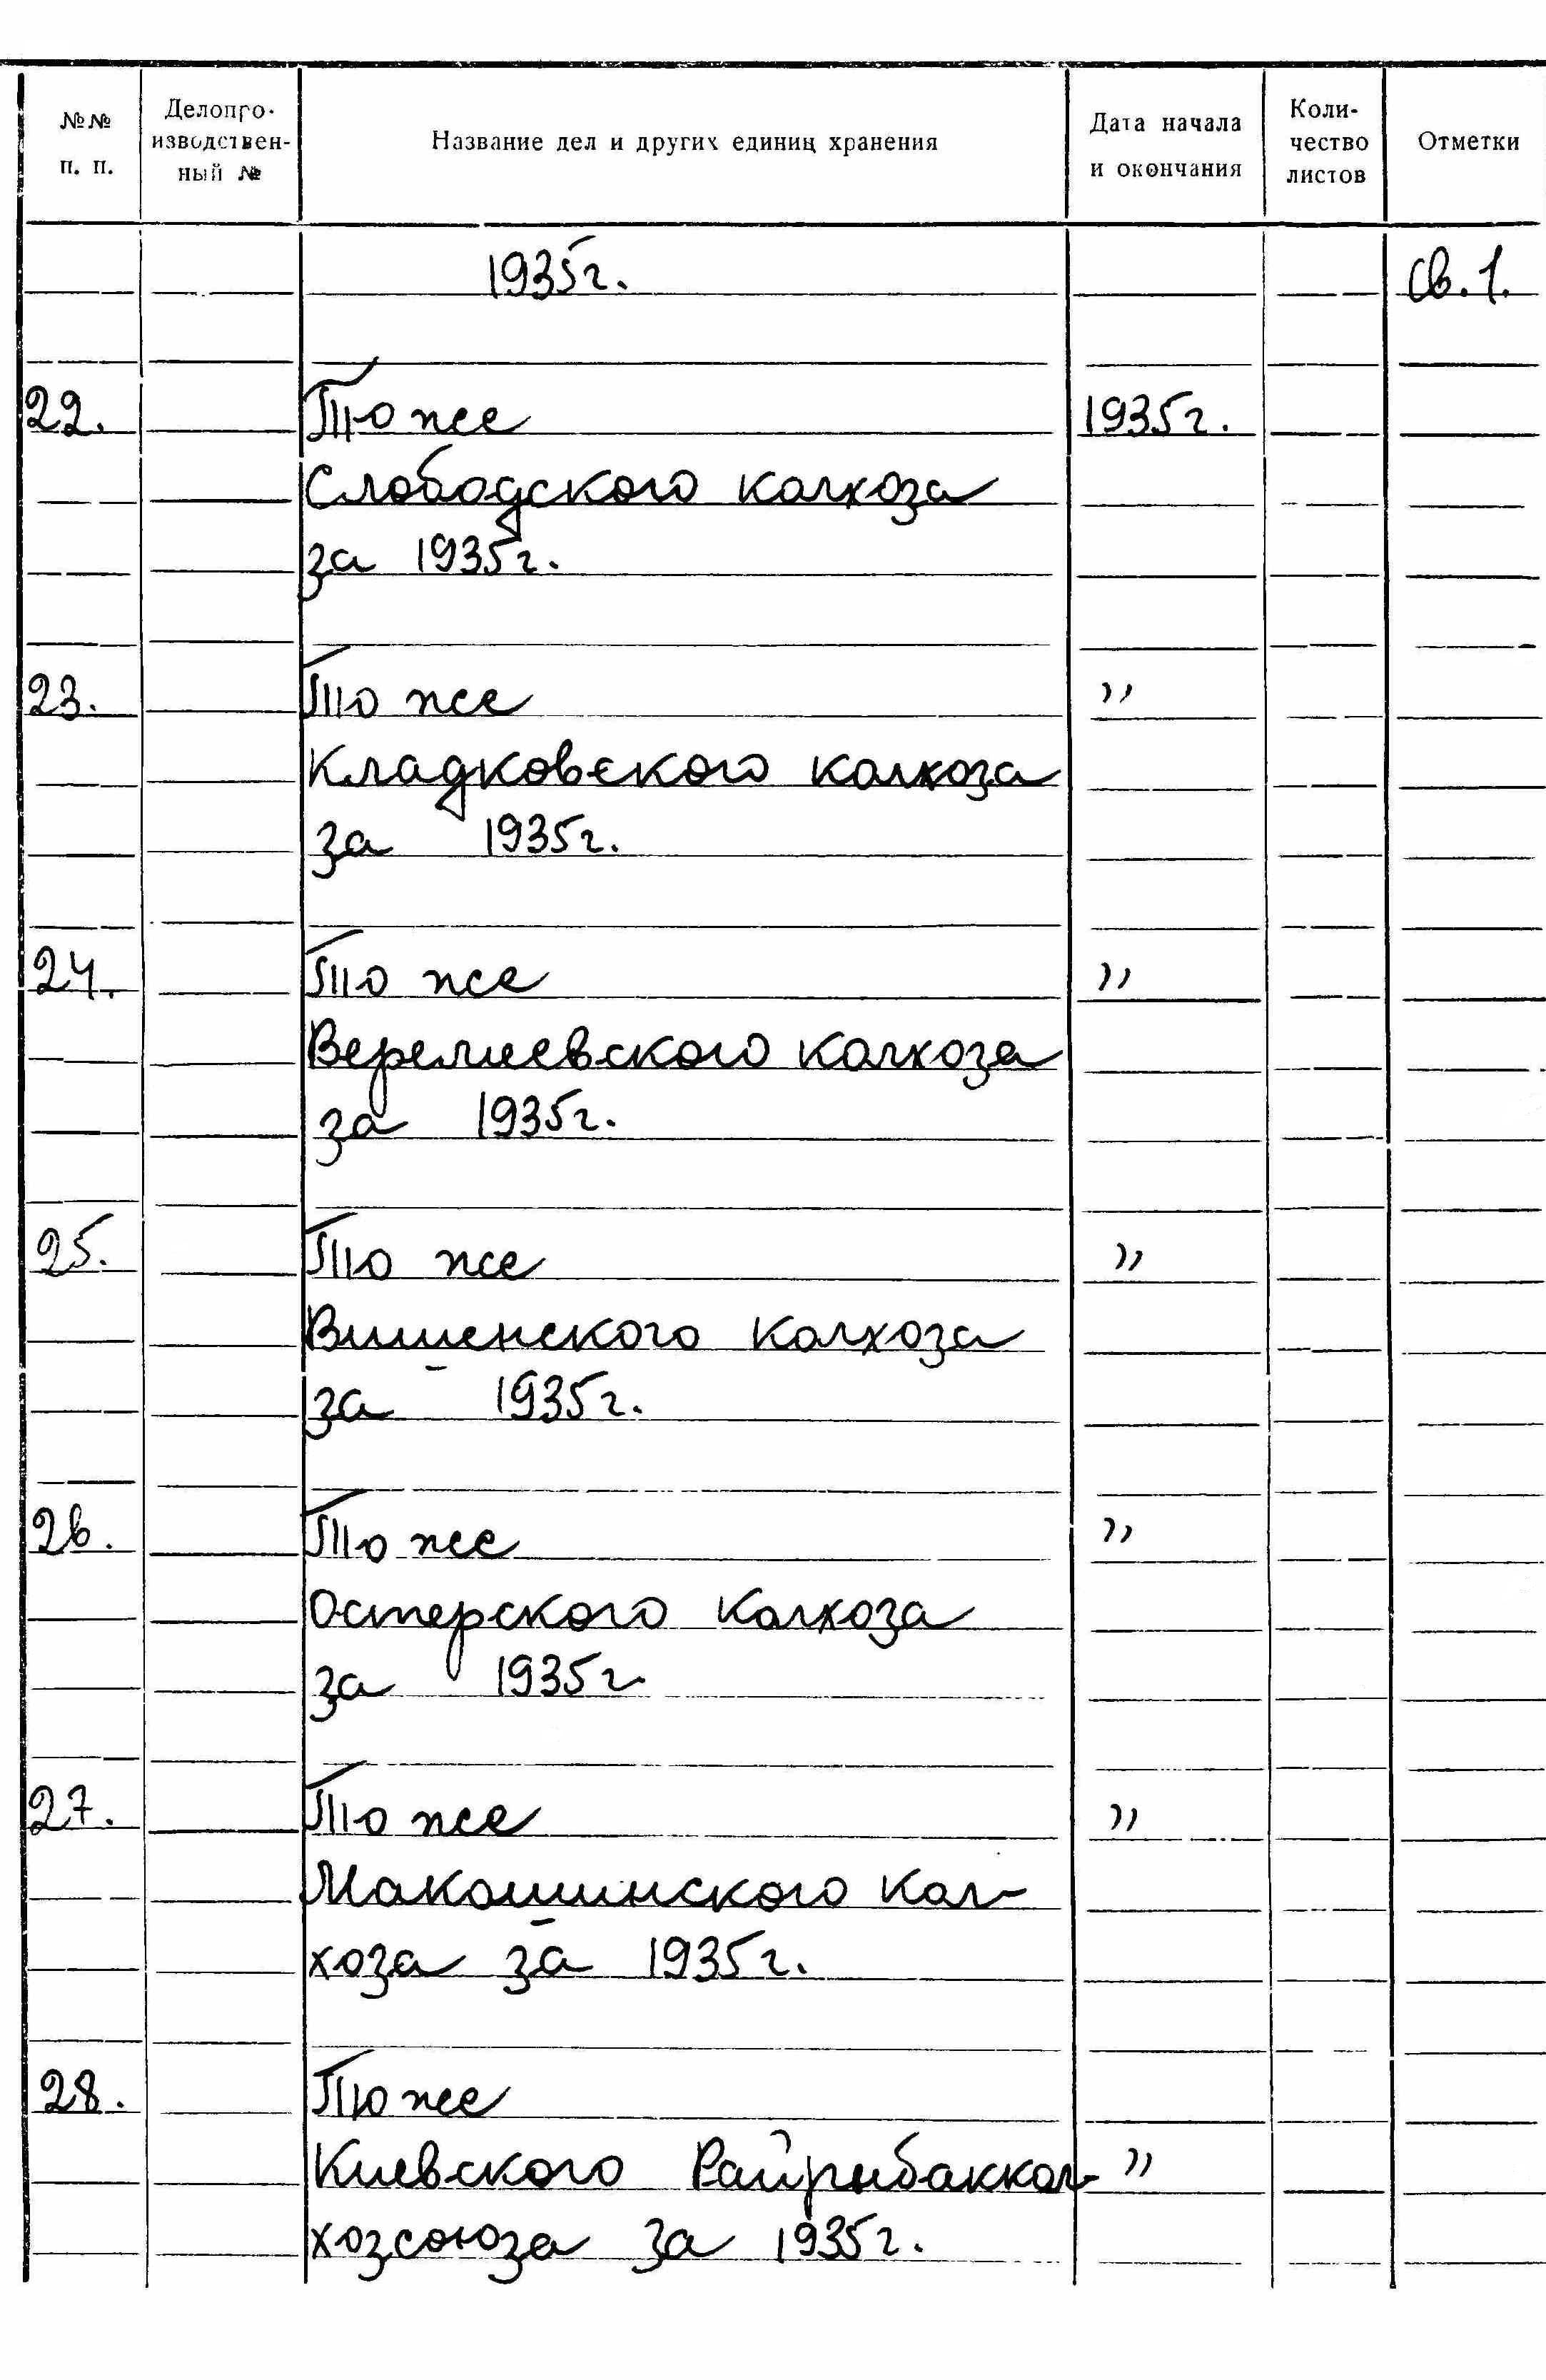 №№ п. п. Делопро- изводствен- ный № Название дел и других единиц хранения Дата начала и окончания Коли- чество листов Отметки
1935г. Св. 1.
22. То же 1935г.
Слободского колхоза
за 1935г.
23. То же "
Кладковского колхоза
за 1935г.
24. То же "
Веремиевского колхоза
за 1935г.
25. То же "
Вишенского колхоза
за 1935г.
26. То же "
Остерского колхоза
за 1935г
27. То же "
Макошинского кол-
хоза за 1935г.
28. То же
Киевского Райрыбаккол- "
хозсоюза за 1935г.